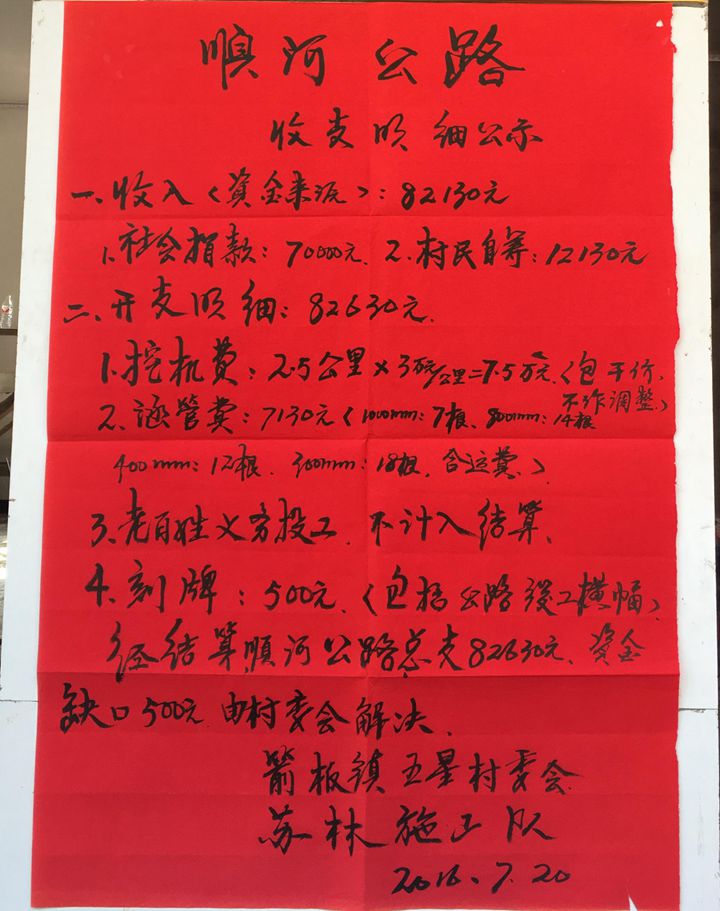 顺河公路
收支明细公示
一、收入(资金来源):82130元
1、社会捐款:70000元、2、村民自筹:12130元
二、开支明细:82630元.
1、挖机费:2.5公里×3万元/公里=7.5万元(包干价,
不作调整)
2、涵管费:7130元(1000mm:7根、800mm:14根
400mm:12根、300mm:18根,含运费、)
3、老百姓义务投工、不计入结算、
4、刻牌:500元、(包括公路竣工横幅)
经结算顺河公路总支82630元、资金
缺口500元.由村委会解决、
箭板镇五星村委会
苏林施工队
2016、7、20